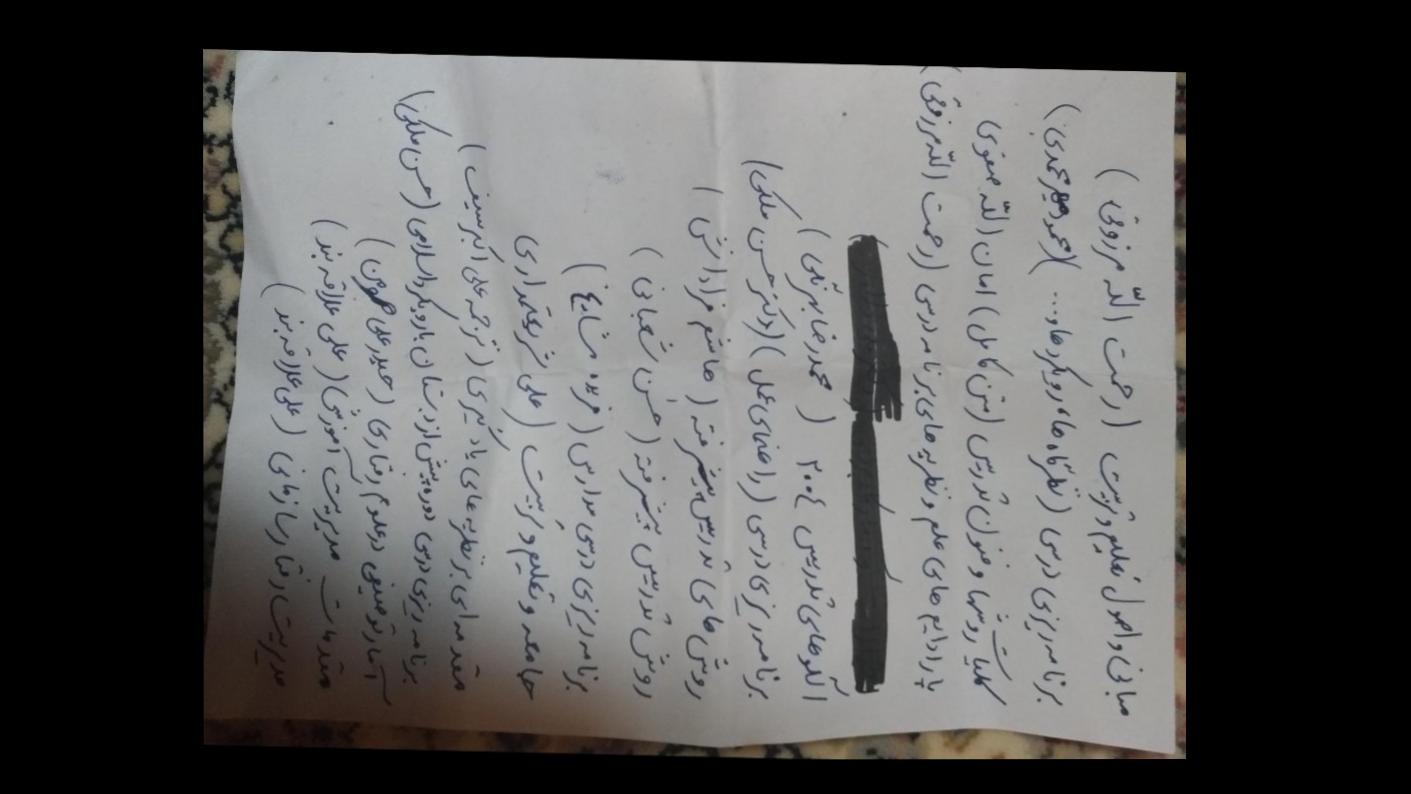 مبانی و اصول تعلیم و تربیت (رحمت الله مرزوقی)
برنامه ریزی درسی (نظرگاه ها، رویکردها و...) (محمد مهر محمدی)
کلیات روشها و فنون تدریس (متن کامل) امان الله صفوی
پارادایم های علم و نظریه های برنامه درسی (رحمت الله مرزوقی)
الگوهای تدریس ۲۰۰۴ (محمدرضا بهرنگی)
برنامه ریزی درسی (راهنمای عمل) (دکتر حسن ملکی)
روش های تدریس پیشرفته (هاشم فردانش)
روش تدریس پیشرفته (حسن شعبانی)
برنامه ریزی درسی مدارس (فریده مشایخ)
جامعه و تعلیم و تربیت (علی شریعتمداری
مقدمه ای بر نظریه های یادگیری (ترجمه علی اکبر سیف)
برنامه ریزی درسی دوره پیش از دبستان با رویکرد اسلامی (حسن ملکی)
آمار توصیفی در علوم رفتاری (حیدرعلی هومن)
مقدمات مدیریت آموزشی (علی علاقه بند)
مدیریت رفتار سازمانی (علی علاقه بند)